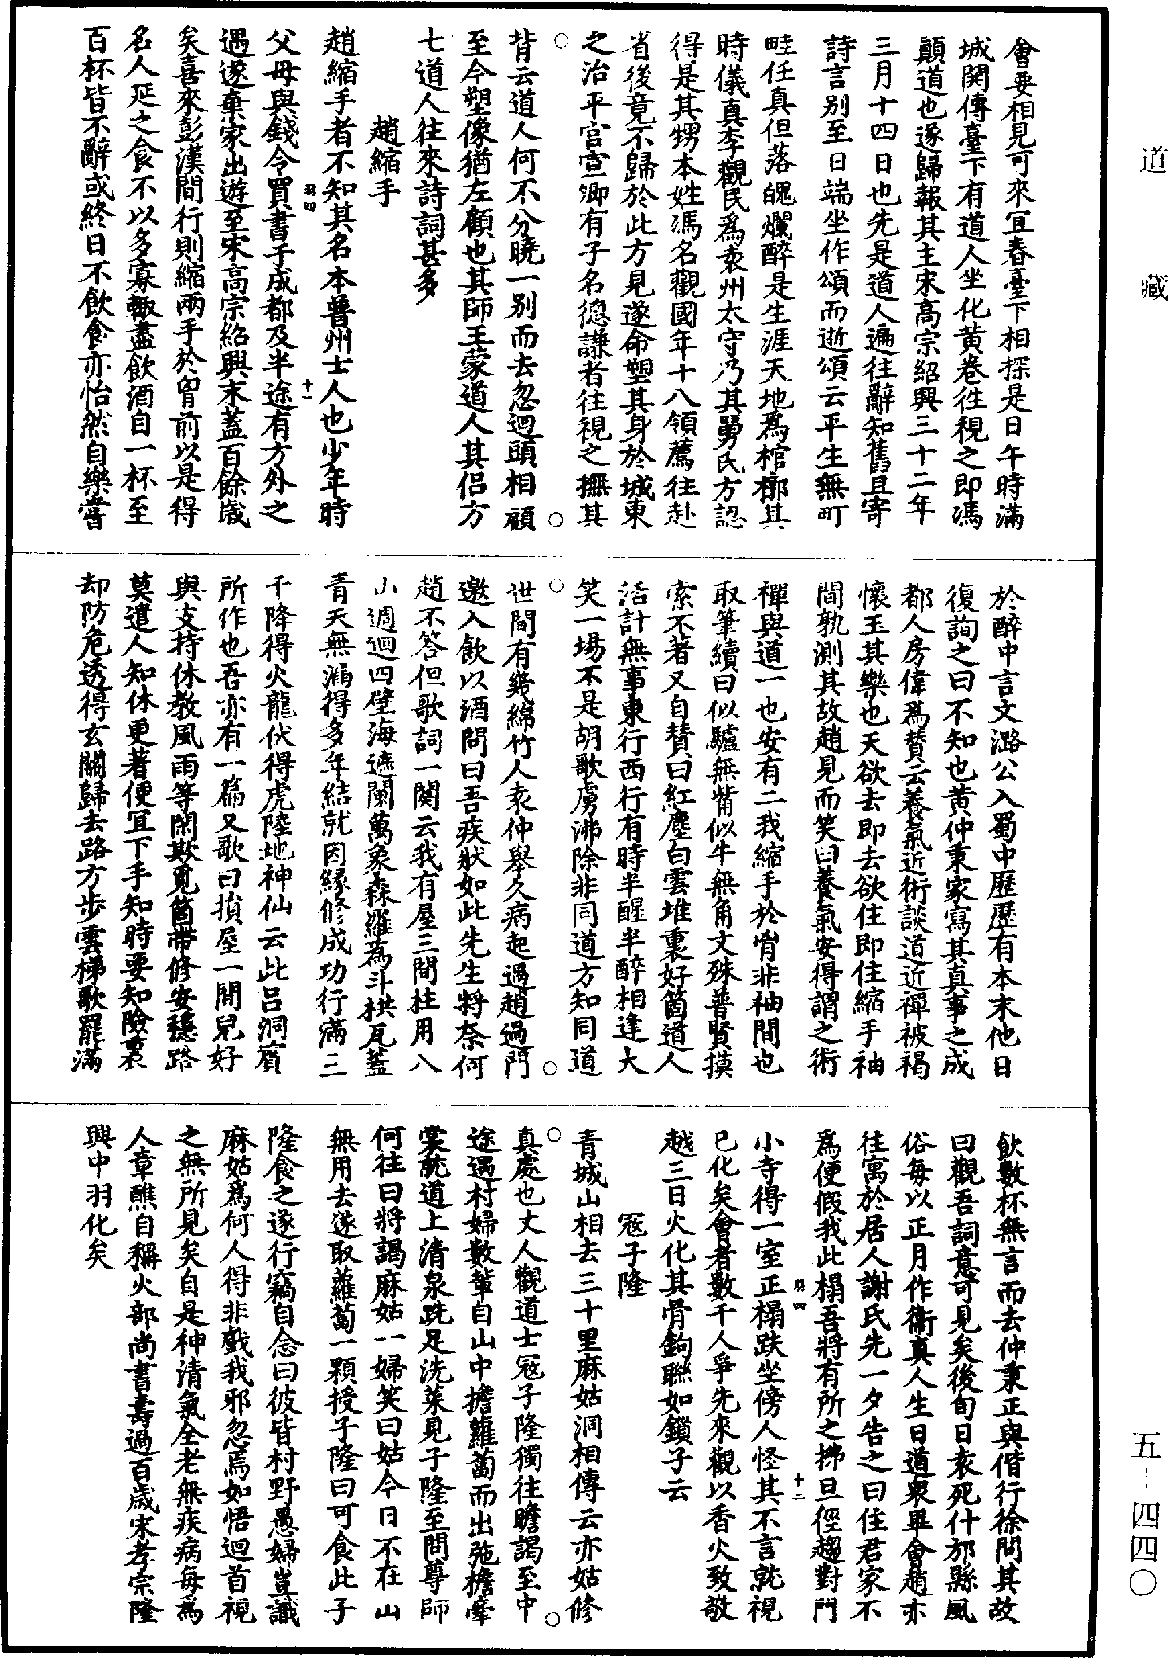 道藏
會要相見可來宜春臺下相探是日午時滿
城鬨傳臺下有道人坐化黃卷往視之即馮
顛道也遂歸報其主宋高宗紹興三十二年
三月十四日也先是道人遍往辭知舊且寄
詩言別至日端坐作頌而逝頌云平生無町
畦任真但落魄爛醉是生涯天地爲棺槨其
時儀真李觀民爲袁州太守乃其舅氏方認
得是其甥本姓馮名觀國年十八領薦往赴
省後竟不歸於此方見遂命塑其身於城東
之治平宮宣卿有子名德謙者往視之撫其
背云道人何不分曉一別而去忽迴頭相顧
至今塑像猶左顧也其師王蒙道人其侶方
七道人往來詩詞甚多
趙縮手
趙縮手者不知其名本普州士人也少年時
父母與錢令買書于成都及半途有方外之
遇遂棄家出遊至宋高宗紹興末蓋百餘歲
矣喜來彭漢間行則縮兩手於胷前以是得
名人延之食不以多寡輙盡飲酒自一杯至
百杯皆不辭或終日不飲食亦怡然自樂嘗
於醉中言文潞公入蜀中歷歷有本末他日
復詢之曰不知也黃仲秉家寫其真事之成
都人房偉爲贊云養氣近術談道近禪被褐
懷玉其樂也天欲去即去欲住即住縮手袖
間孰測其故趙見而笑曰養氣安得謂之術
禪與道一也安有二我縮手於胷非袖間也
取筆續曰似驢無觜似牛無角文殊普賢摸
索不著又自賛曰紅塵白雲堆裏好箇道人
活計無事東行西行有時半醒半醉相逢大
笑一場不是胡歌虜沸除非同道方知同道
世間有幾綿竹人袁仲舉久病起過趙過門
邀入飲以酒問曰吾疾狀如此先生將奈何
趙不答但歌詞一闋云我有屋三間柱用八
山週迴四壁海遮闌萬象森羅爲斗栱瓦蓋
青天無漏得多年結就因緣修成功行滿三
千降得火龍伏得虎陸地神仙云此呂洞賓
所作也吾亦有一篇又歌曰損屋一間兒好
與支持休教風雨等閑欺覓箇帶修安穩路
莫遣人知休更著便宜下手知時要知險裏
却防危透得玄關歸去路方步雲梯歌罷滿
飲數杯無言而去仲秉正與偕行徐問其故
曰觀吾詞意可見矣後旬日袁死什邡縣風
俗每以正月作衞真人生日道衆畢會趙亦
往寓於居人謝氏先一夕告之曰住君家不
爲便假我此榻吾將有所之拂旦徑趨對門
小寺得一室正榻趺坐傍人怪其不言就視
已化矣會者數千人爭先來觀以香火致敬
越三日火化其骨鉤聯如鎖子云
寇子隆
青城山相去三十里麻姑洞相傳云亦姑修
真處也丈人觀道士寇子隆獨往瞻謁至中
途遇村婦數輩自山中擔蘿蔔而出弛擔牽
裳就道上清泉跣足洗菜見子隆至問尊師
何往曰將謁麻姑一婦笑曰姑今日不在山
無用去遂取蘿蔔一顆授子隆曰可食此子
隆食之遂行竊自念曰彼皆村野愚婦豈識
麻姑爲何人得非戲我邪忽焉如悟迴首視
之無所見矣自是神清氣全老無疾病每爲
人章醮自稱火部尚書壽過百歲宋孝宗隆
興中羽化矣
五－四四〇